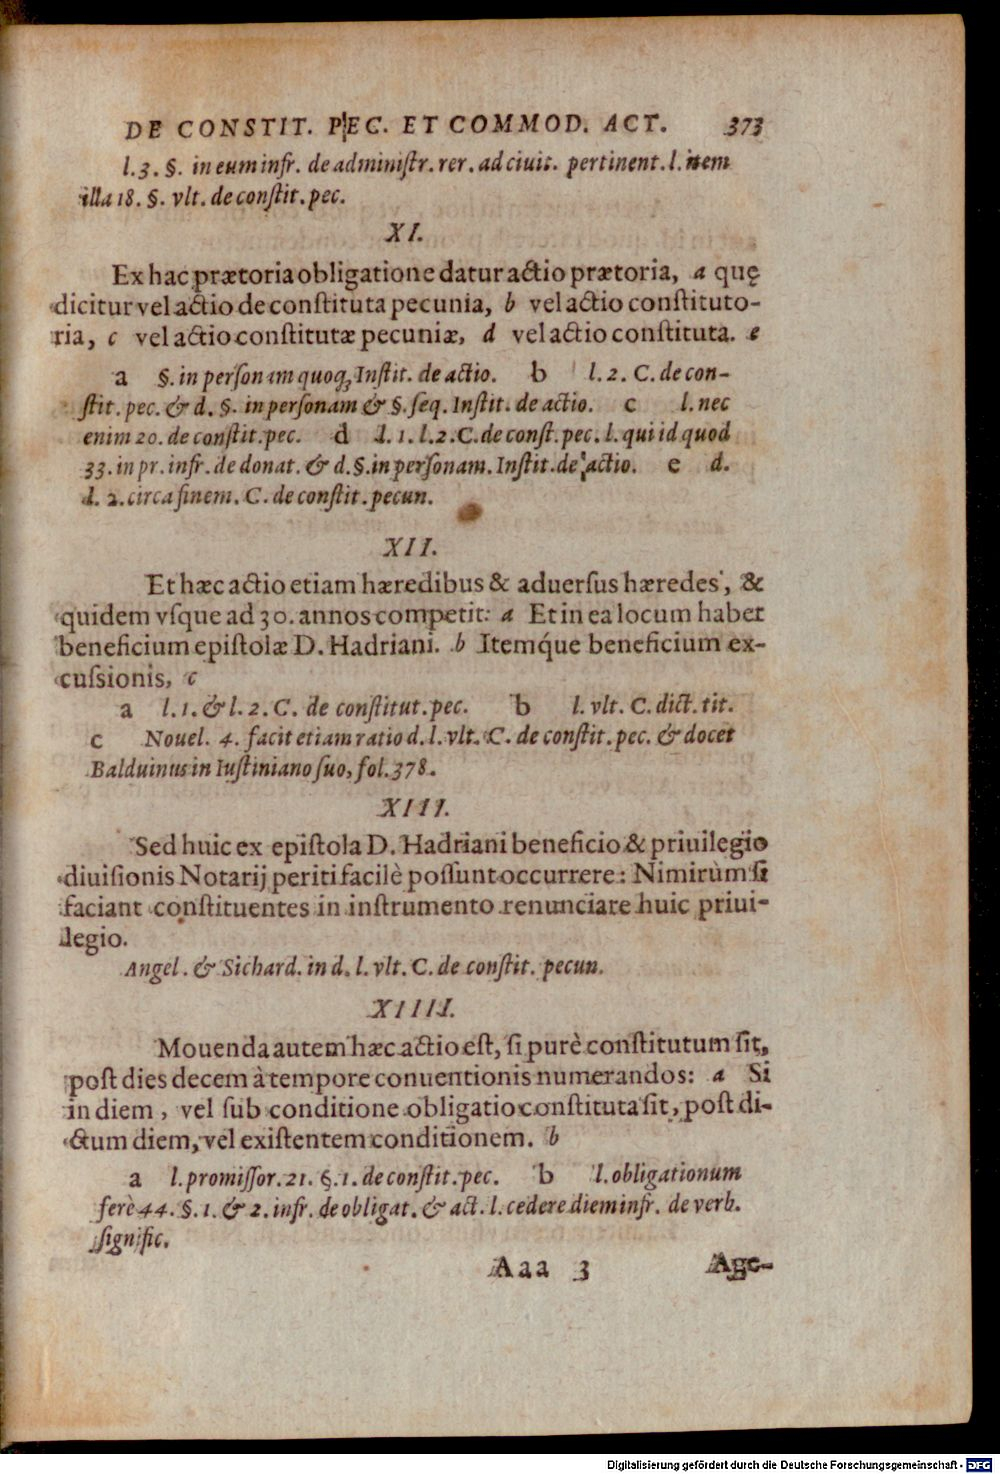 DE CONSTIT. PEC. ET COMMOD. ACT. 373
l. 3. §. in eum infr. de adminiſtr. rer. ad ciuit. pertinent. l. item
illa 18. §. vlt. de conſtit. pec.
XI.
Ex hac prætoria obligatione datur actio prætoria, a quę
dicitur vel actio de conſtituta pecunia, b vel actio conſtituto-
ria, c vel actio conſtitutæ pecuniæ, d vel actio conſtituta. e
a §. in perſonam quoq; Inſtit. de actio. b l. 2. C. de con-
ſtit. pec. & d. §. in perſonam & §. ſeq. Inſtit. de actio. c l. nec
enim 20. de conſtit. pec. d l. 1. l. 2. C. de conſt. pec. l. qui id quod
33. in pr. infr. de donat. & d. §. in perſonam. Inſtit. de actio. e d.
l. 2. circa finem. C. de conſtit. pecun.
XII.
Et hæc actio etiam hæredibus & aduerſus hæredes, &
quidem vſque ad 30. annos competit: a Et in ea locum habet
beneficium epiſtolæ D. Hadriani. b Itemq́ue beneficium ex-
cuſsionis, c
a l. 1. & l. 2. C. de conſtitut. pec. b l. vlt. C. dict. tit.
c Nouel. 4. facit etiam ratio d. l. vlt. C. de conſtit. pec. & docet
Balduinus in Iuſtiniano ſuo, fol. 378.
XIII.
Sed huic ex epiſtola D. Hadriani beneficio & priuilegio
diuiſionis Notarij periti facilè poſſunt occurrere: Nimirùm ſi
faciant conſtituentes in inſtrumento renunciare huic priui-
legio.
Angel. & Sichard. in d. l. vlt. C. de conſtit. pecun.
XIIII.
Mouenda autem hæc actio eſt, ſi purè conſtitutum ſit,
poſt dies decem à tempore conuentionis numerandos: a Si
in diem, vel ſub conditione obligatio conſtituta ſit, poſt di-
ctum diem, vel exiſtentem conditionem. b
a l. promiſſor. 21. §. 1. de conſtit. pec. b l. obligationum
ferè 44. §. 1. & 2. infr. de obligat. & act. l. cedere diem infr. de verb.
ſignific.
Aaa 3 Age-
Digitalisierung gefördert durch die Deutsche Forschungsgemeinschaft - DFG